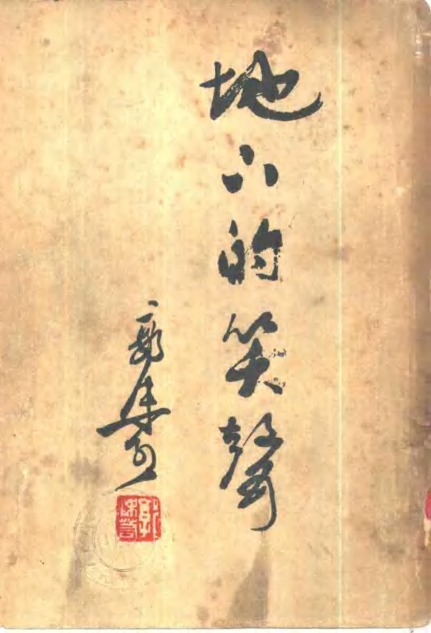 地下的笑聲
郭沫若